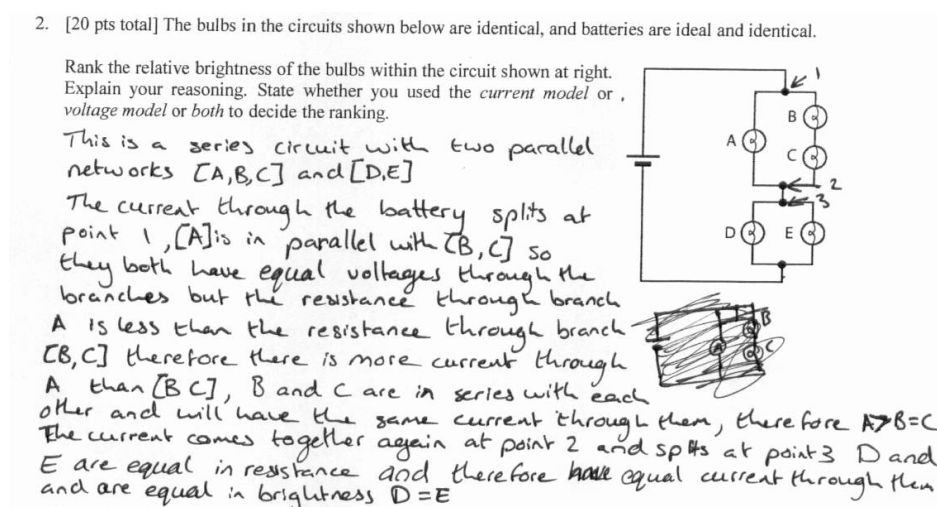 2. [20 pts total] The bulbs in the circuits shown below are identical, and batteries are ideal and identical.
Rank the relative brightness of the bulbs within the circuit shown at right.
Explain your reasoning. State whether you used the current model or
voltage model or both to decide the ranking.
This is a series circuit with two parallel
networks [A,B,C] and [D,E]
The current through the battery splits at
point 1, [A] is in parallel with [B,C] so
they both have equal voltages through the
branches but the resistance through branch
A is less than the resistance through branch
[B,C] therefore there is more current through
A than [B C], B and C are in series with each
other and will have the same current through them, therefore A>B=C
The current comes together again at point 2 and splits at point 3 D and
E are equal in resistance and therefore have equal current through them
and are equal in brightness D=E
1
B
A
C
2
3
D
E
B
A
C